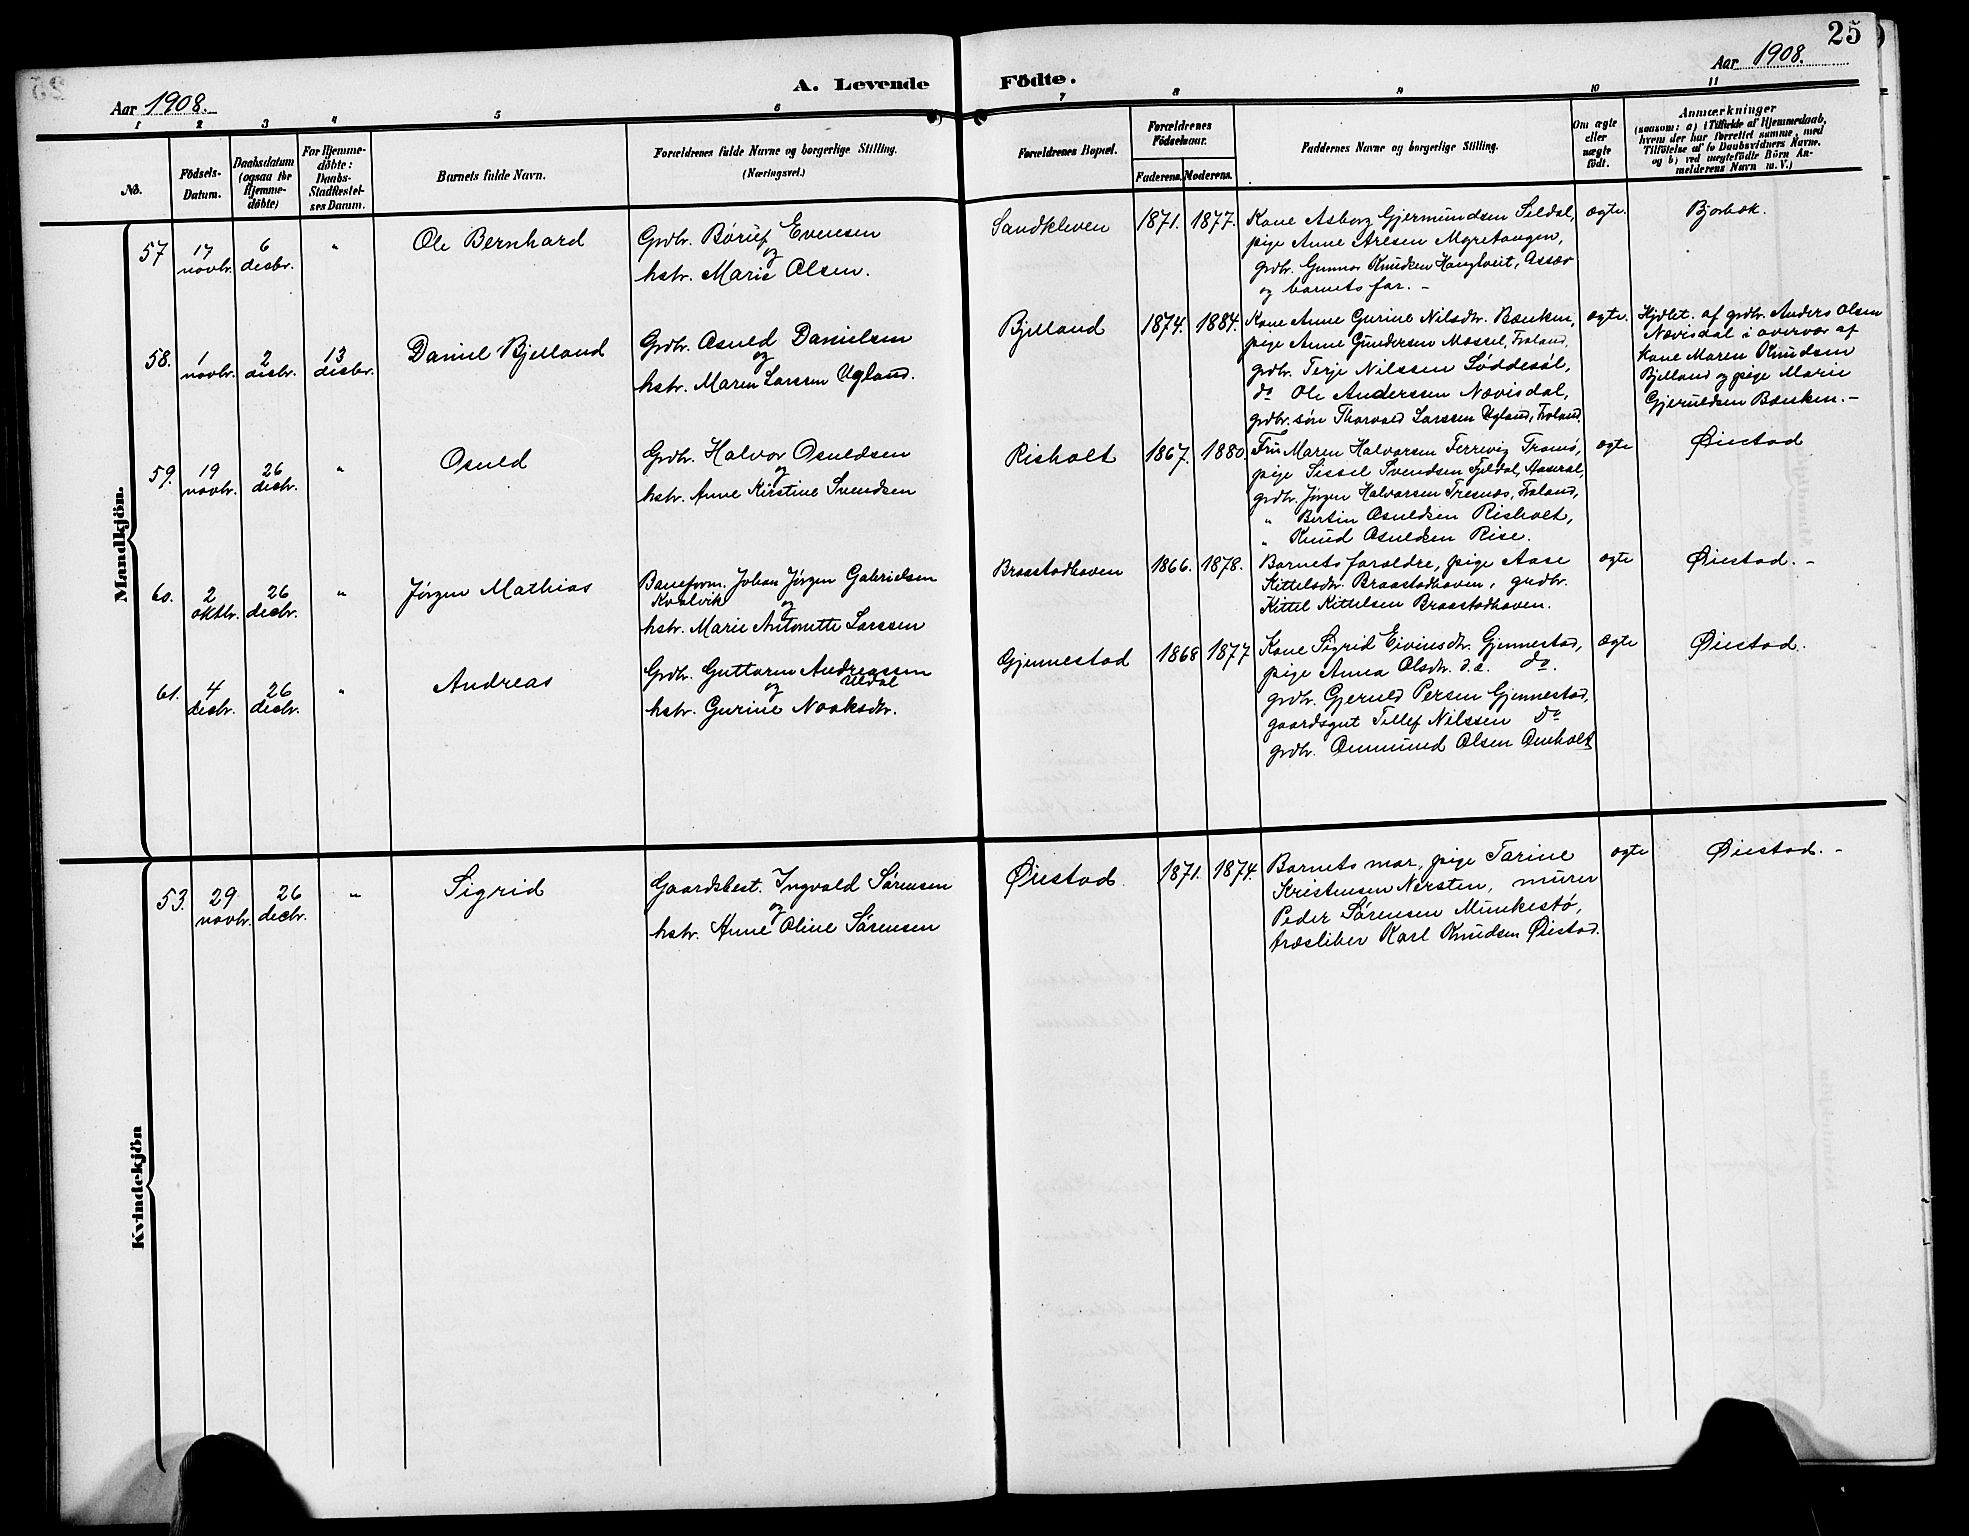 25
Aar 1908.
A. Levende Födte.
Aar 1908.
1 2 3 4 5 6 7 8 9 10 11
No.
Födsels-
Datum.
Daabsdatum
(ogsaa for
Hjemme-
döbte)
For Hjemme-
döbte:
Daabs-
Stadfæstel-
ses Datum.
Barnets fulde Navn.
Forældrenes fulde Navne og borgerlige Stilling.
(Næringsvei.)
Forældrenes Bopæl.
Forældrenes
Födselsaar.
Faderens. Moderens.
Faddernes Navne og borgerlige Stilling.
Om ægte
eller
uægte
födt.
Anmærkninger
(saasom: a) i Tilfælde af Hjemmedaab,
hvem der har forrettet samme, med
Tilföielse af to Daabsvidners Navne,
og b) ved uægtefödte Börn An-
melderens Navn m. V.)
Mandkjön.
57 17 novbr. 6 decbr. "
Ole Bernhard
Grdbr. Børuf Evensen
og
hstr. Marie Olsen.
Sandkleven 1871. 1877.
Kone Asborg Gjermundsen Seldal,
pige Anne Aresen Myretangen,
grdbr. Gunnar Knudsen Haugtveit,
og barnets far. -
ægte.
Bjorbæk.
58. 1 novbr. 2 decbr. 13 decbr.
Daniel Bjelland
Grdbr. Osuld Danielsen
og
hstr. Maren Larssen Ugland.
Bjelland 1874. 1884.
Kone Anne Gurine Nilsdtr. Bænken,
pige Anne Gundersen Messel, Froland,
grdbr. Terje Nilssen Løddesøl,
do Ole Anderssen Nævisdal,
grdbr. søn Thorvald Larssen Ugland, Froland.
ægte.
Hjdbt. af grdbr. Anders Olsen
Nævisdal i overvær af
kone Maren Knudsen
Bjelland og pige Marie
Gjeruldsen Bænken. -
59. 19 novbr. 26 decbr. "
Osuld
Grdbr. Halvor Osuldsen
og
hstr. Anne Kirstine Svendsen
Risholt 1867. 1880
Fru Maren Halvorsen Færevig Tromø,
pige Sissel Svendsen Fjeldal, Aaseral,
grdbr. Jørgen Halvorsen Tresnæs, Froland,
" Bertin Osuldsen Risholt,
" Knud Osuldsen Rise.
ægte
Øiestad
60. 2 oktbr. 26 decbr. "
Jørgen Mathias
Baneform. Johan Jørgen Gabrielsen
Kvalvik og
hstr. Marie Antonette Larssen
Braastadhaven 1866. 1878.
Barnets forældre, pige Aase
Kittelsdtr. Braastadhaven, grdbr.
Kittel Kittelsen Braastadhaven.
ægte
Øiestad. -
61. 4 decbr. 26 decbr. "
Andreas
Grdbr. Guttorm Andreassen
og Uldal
hstr. Gurine Noaksdtr.
Gjennestad 1868 1877
Kone Sigrid Eivindsdtr. Gjennestad,
pige Anna Olsdtr. d.æ. do.
grdbr. Gjeruld Persen Gjennestad,
gaardsgut Tellef Nilssen do
grdbr. Ommund Olsen Omholt
Ægte
Øiestad.
Kvindekjön
53. 29 novbr. 26 decbr. "
Sigrid
Gaardsbest. Ingvald Sørensen
og
hstr. Anne Oline Sørensen
Øiestad. 1871. 1874.
Barnets mor, pige Tarine
Kristensen Nersten, murer
Peder Sørensen Munkestø,
træsliber Karl Knudsen Øiestad.
ægte
Øiestad. -